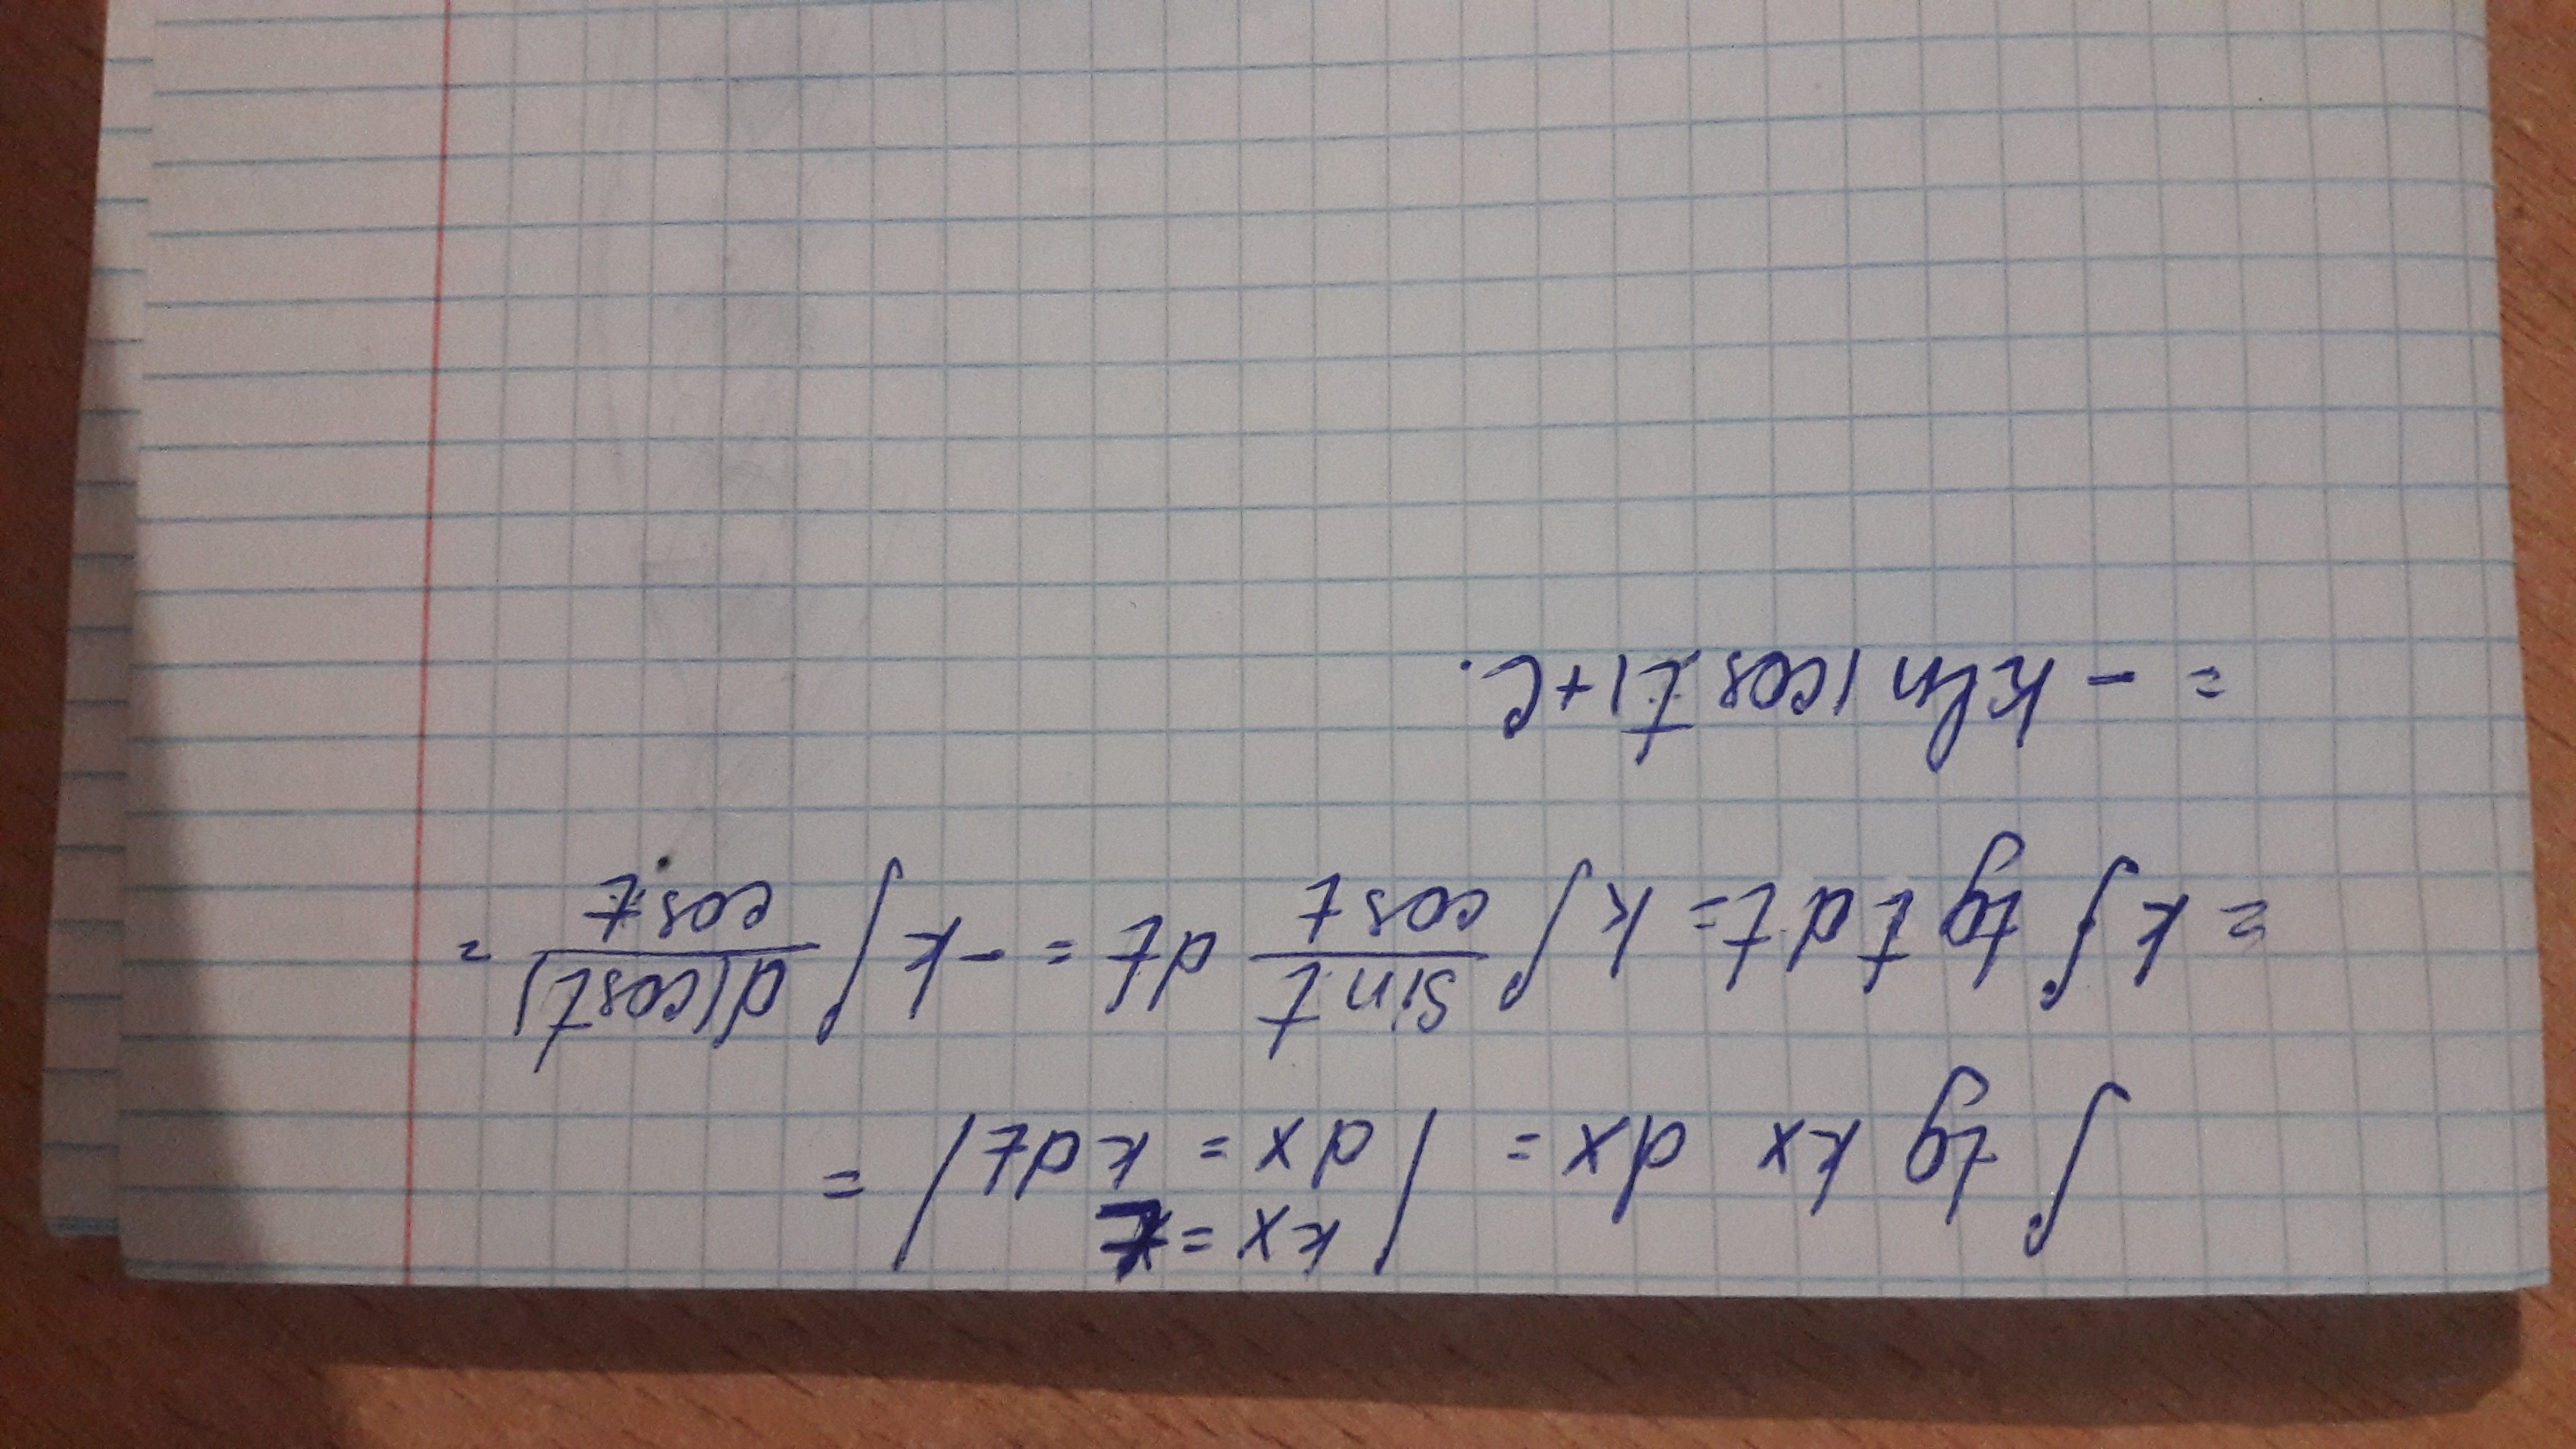 ∫ tg kx dx = | kx = t
dx = kdt | =
= k ∫ tg t dt = k ∫ sint/cost dt = -k ∫ d(cost)/cost =
= - k ln |cos t| + C.